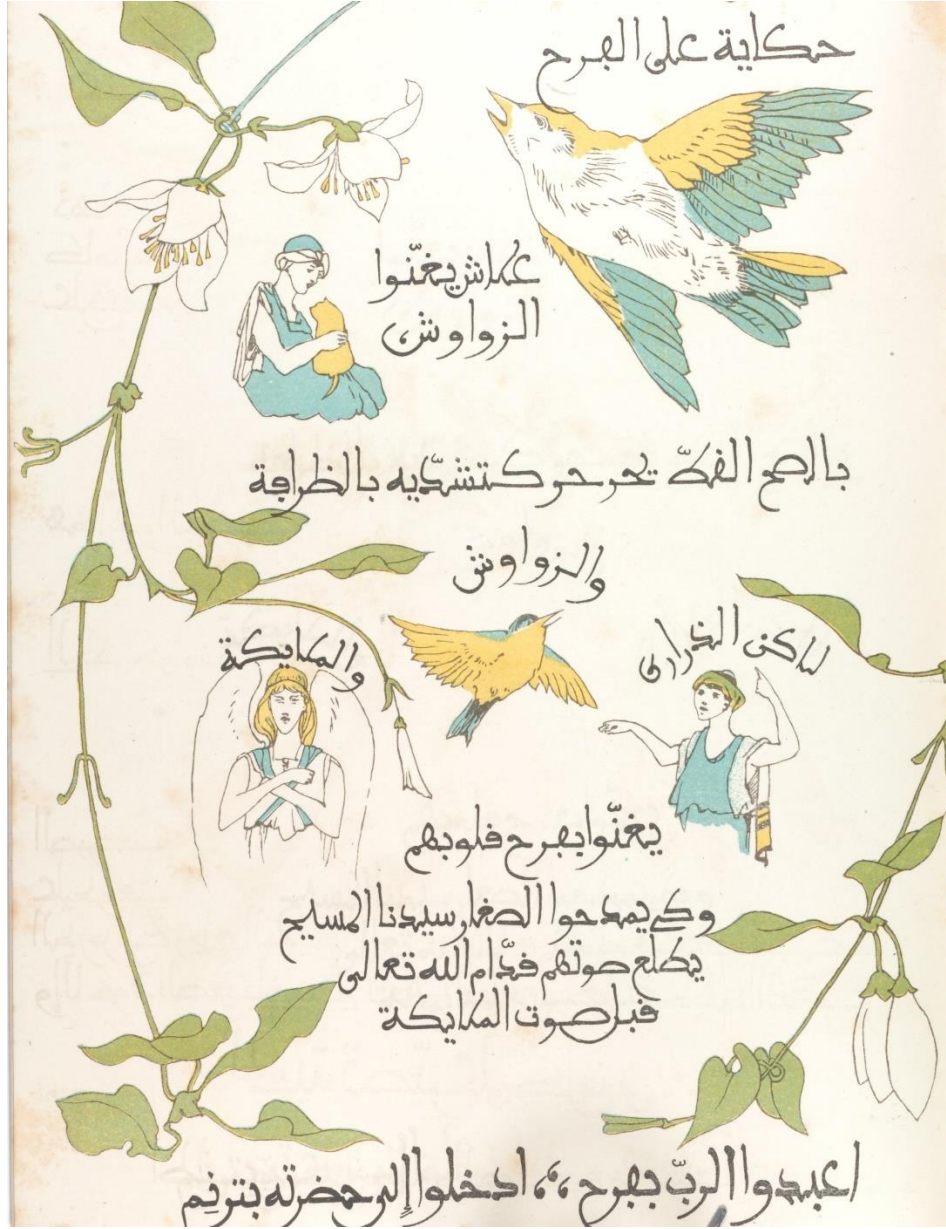 حكاية على الفرح
علاش يغنّوا
الزواوش،
بالصح القطّ يخرخر كتشدّيه بالظرافة
والزواوش
لاكن الذراري
والملايكة
يغنّوا بفرح قلوبهم
وكي يمدحوا الصغار سيدنا المسيح
يطلع صوتهم قدّام الله تعالى
قبل صوت الملايكة
اعبدوا الربّ بفرح ،، ادخلوا إلى حضرته بترنم